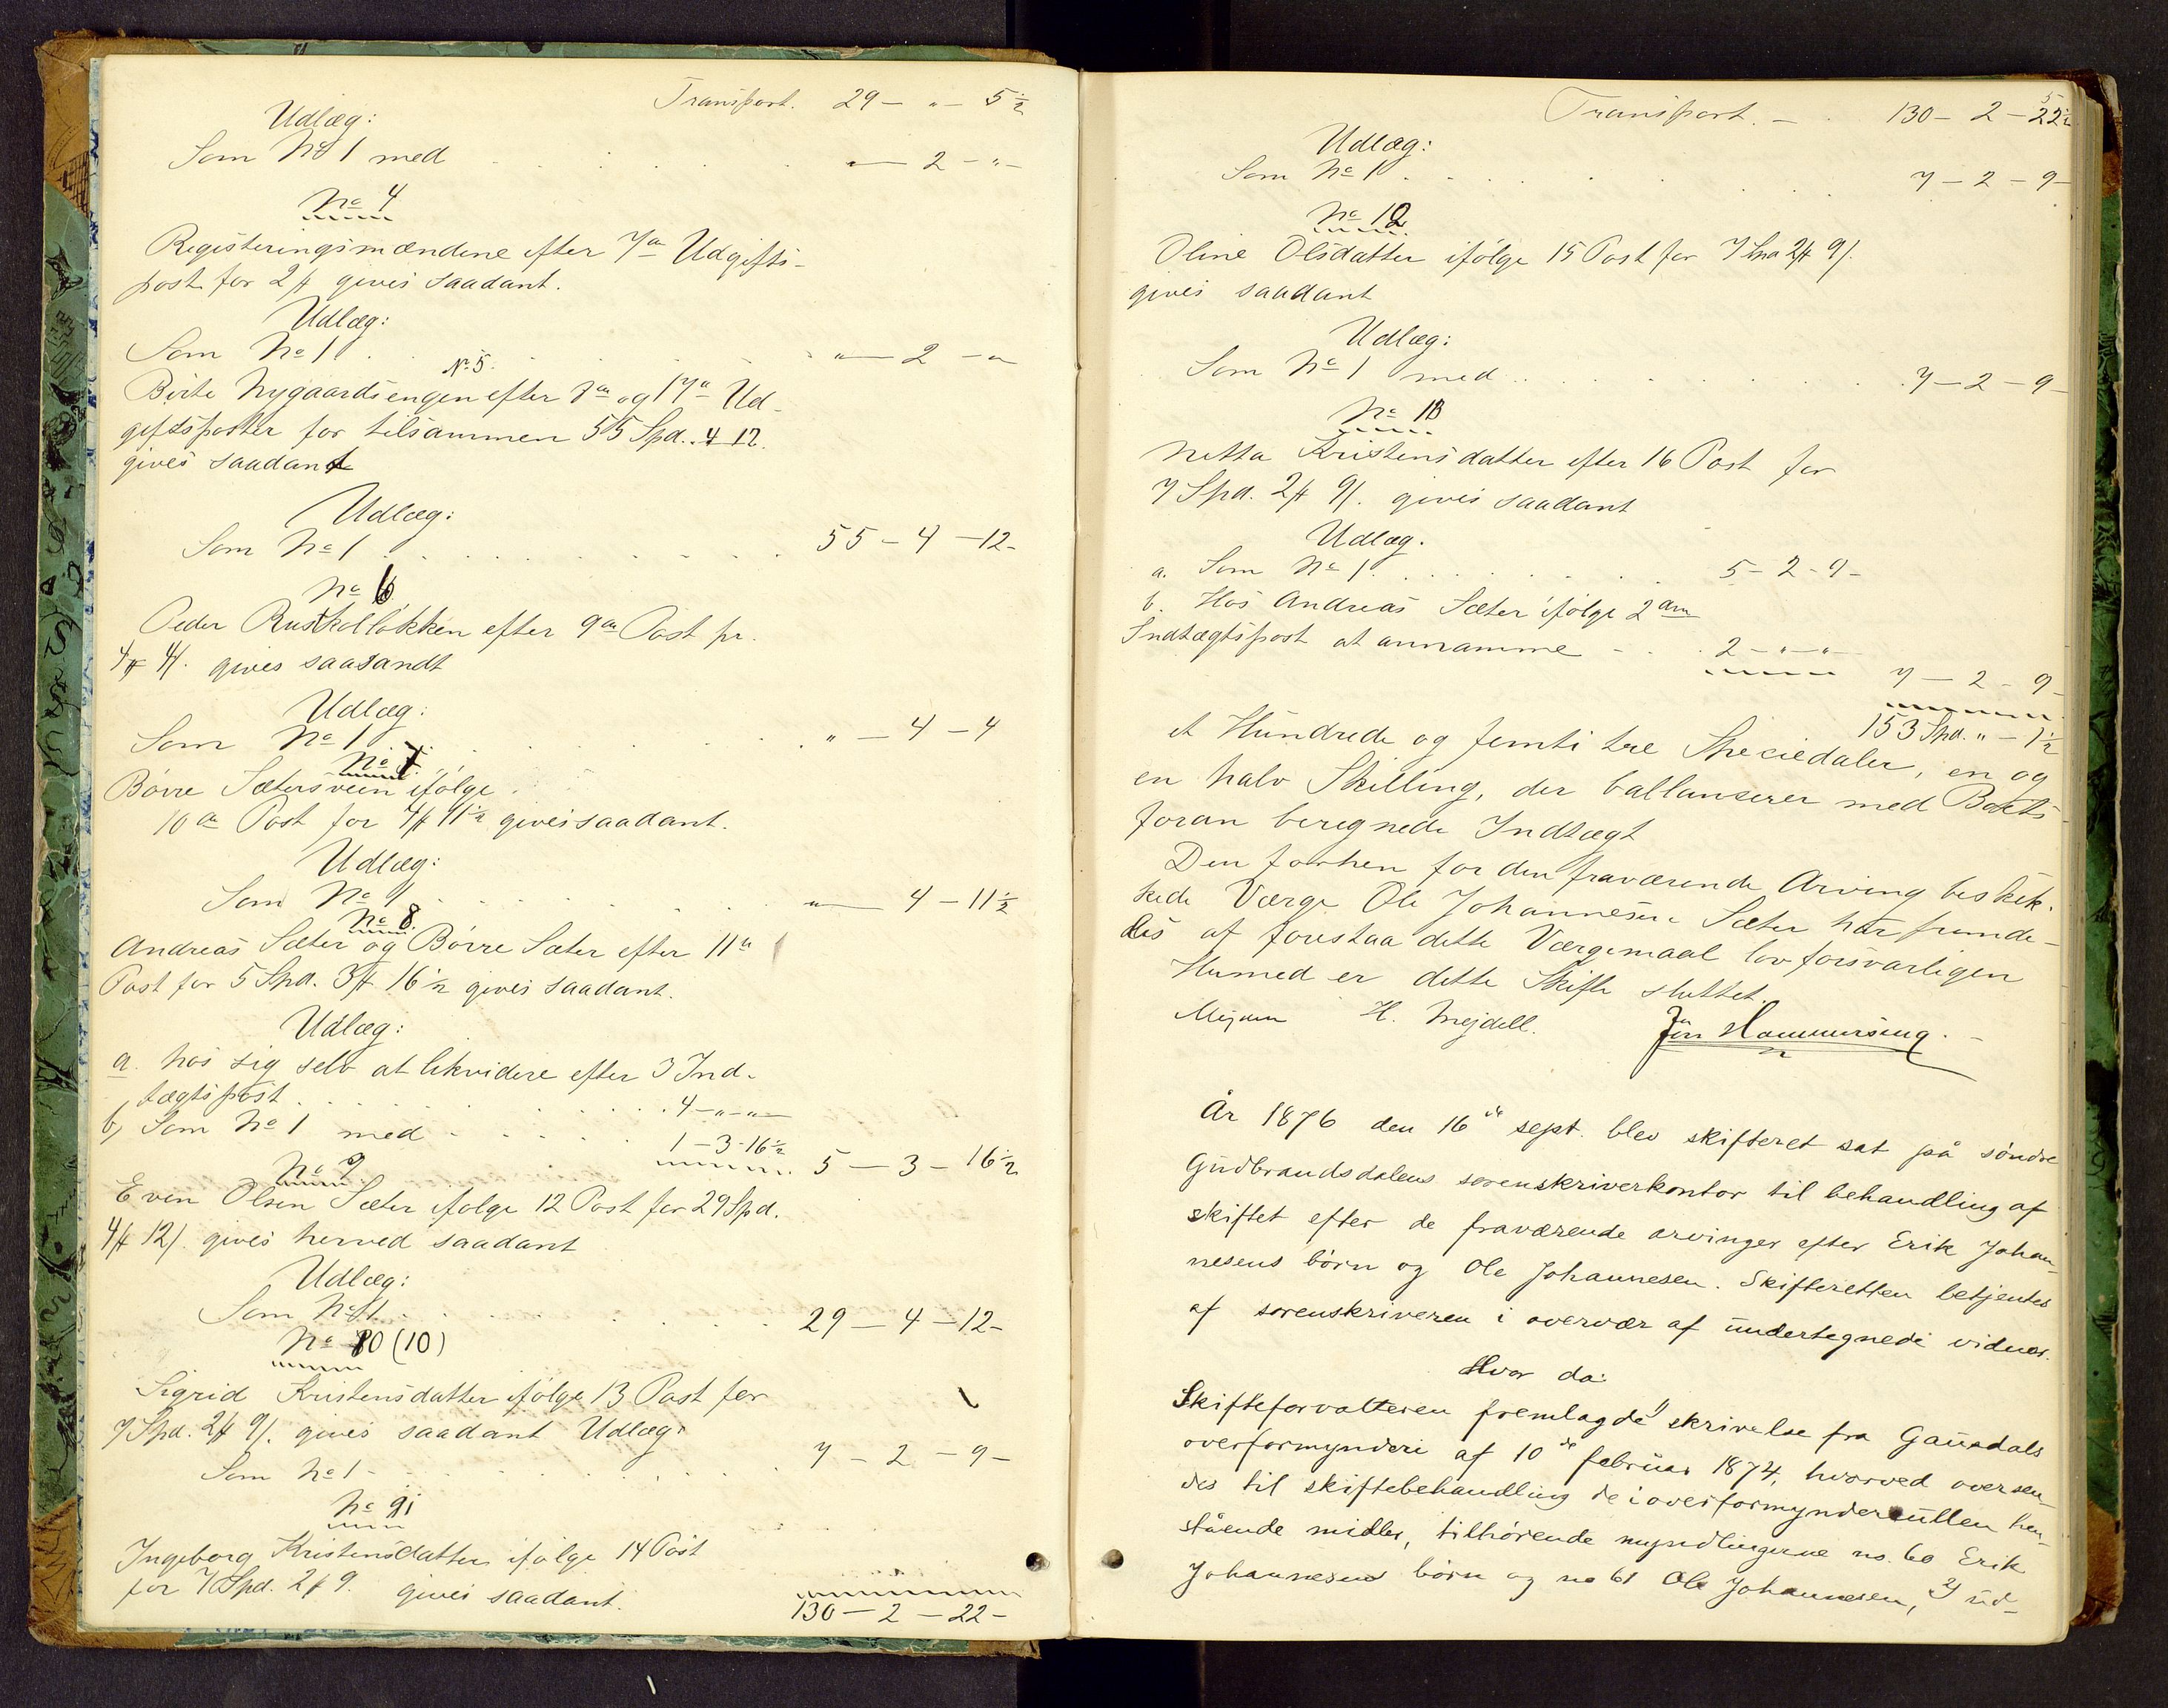 Transport. 29 – " – 5 ½
Udlæg:
Som No 1 med " – 2 – " –
No 4
Registeringsmændene efter 7de Udgifts-
post for 2 ₶ gives saadant.
Udlæg:
Som No 1 " – 2 – "
No 5.
Birte Nygaardsengen efter 8de og 17de Ud-
giftsposter for tilsammen 55 Spd. 4 12.
gives saadant
Udlæg:
Som No 1 55 – 4 – 12 –
No 6
Peder Rustkolløkken efter 9de Post pr.
4 ₶ 4/. gives saasandt
Udlæg:
Som No 1 " – 4 – 4
No 7
Børre Sætersveen ifølge
10de Post for 4 ₶ 11 ½ gives saadant.
Udlæg:
Som No 1 " – 4 – 11 ½
No 8.
Andreas Sæter og Børre Sæter efter 11te
Post for 5 Spd. 3 ₶ 16 ½ gives saadant.
Udlæg:
a. hos sig selv at likvidere efter 3 Ind-
tægtspost 4 – " – " –
b, Som No 1 med 1 – 3 – 16 ½
5 – 3 – 16 ½
No 9
Even Olsen Sæter ifølge 12 Post for 29 Spd.
4 ₶ 12/. gives herved saadant
Udlæg:
Som No 1 29 – 4 – 12 –
No 10 (10)
Sigrid Kristensdatter ifølge 13 Post for
7 Spd. 2 ₶ 9/. gives saadant Udlæg:
Som No 1 – 7 – 2 – 9 –
No 11
Ingeborg Kristensdatter ifølge 14 Post
for 7 Spd. 2 ₶ 9. gives saadant.
130 – 2 – 22 –
5
Transport. – 130 – 2 – 22 ½
Udlæg:
Som No 1 7 – 2 – 9 –
No 12
Oline Olsdatter ifølge 15 Post for 7 Spd 2 ₶ 9/.
gives saadant
Udlæg:
Som No 1 med 7 – 2 – 9 –
No 13
Netta Kristensdatter efter 16 Post for
7 Spd. 2 ₶ 9/. gives saadant
Udlæg.
a. Som No 1 5 – 2 – 9 –
b. Hos Andreas Sæter ifølge 2den
Indtægtspost at annamme – 2 – " – " –
7 – 2 – 9 –
153 Spd. " – 1 ½
et Hundrede og femti tre Speciedaler, en og
en halv Skilling, der ballanserer med Boets
foran beregnede Indtægt
Den forhen for den fraværende Arving beskik-
kede Værge Ole Johannesen Sæter har fremde-
les at forestaa dette Værgemaal lovforsvarligen
Hermed er dette Skifte sluttet.
H. Mejdell.
År 1876 den 16de sept. blev skifteret sat på søndre
Gudbrandsdalens sorenskriverkontor til behandling af
skiftet efter de fraværende arvinger efter Erik Johan-
nesens børn og Ole Johannesen. Skifteretten betjentes
af sorenskriveren i overvær af undertegnede vidner.
Hvor da:
Skifteforvalteren fremlagde 1) skrivelse fra Gausdals
overformynderi af 10de februar 1874, hvorved oversen-
des til skiftebehandling de i overformynderrullen hen-
stående midler, tilhørende myndlingerne no. 60 Erik
Johannesens børn og no 61 Ole Johannesen, 2) ud-